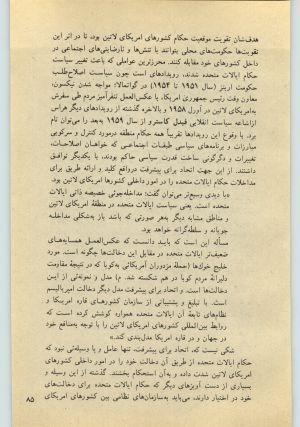 هدفشان تقویت موقعیت حکام کشورهای امریکای لاتین بود، تا در اثر این
تقویت‌ها حکومت‌های محلی بتوانند با تنش‌ها و نارضایتی‌های اجتماعی در
داخل کشورهای خود مقابله کنند. محرزترین عواملی که باعث تغییر سیاست
حکام ایالات متحده شدند، رویدادهای است چون سیاست اصلاح‌طلب
حکومت اربنز (سال ۱۹۵۱ تا ۱۹۵۴) در گواتمالا؛ مواجه شدن نیکسون،
معاون وقت رئیس جمهوری امریکا، با عکس‌العمل تنفرآمیز مردم طی سفرش
به‌امریکای لاتین در آوریل ۱۹۵۸ و بالاخره گذشته از رویدادهای دیگر هراس
ازاشاعه سیاست انقلابی فیدل کاسترو از سال ۱۹۵۹ به‌بعد را می‌توان نام
برد. با وقوع این رویدادها تقریباً همه حکام منطقه درمورد کنترل و سرکوبی
مبارزات و برنامه‌های سیاسی طبقات اجتماعی که خواهان اصلاحات،
تغییرات و دگرگونی ساخت قدرت سیاسی حاکم بودند، با یکدیگر توافق
داشتند. از این جهت اتحاد برای پیشرفت درواقع کلید و ارائه طریق برای
مداخلات حکام ایالات متحده را در امور داخلی کشورها امریکای لاتین بود.
«با دیدی وسیع‌تر می‌توان گفت: مداخله‌جوئی خصیصه ذاتی ایالات
متحده است. یعنی سیاست ایالات متحده در منطقهٔ امریکای لاتین
و مناطق مشابه دیگر به‌هر صورتی که باشد باز به‌شکلی مداخله
جویانه و سلطه‌گرانه خواهد بود.
مسأله این است که باید دانست که عکس‌العمل همسایه‌های
ضعیف‌تر ایالات متحده در مقابل این دخالت‌ها چگونه است. مورد
خلیج خوک‌ها (حملهٔ مزدوران امریکائی به‌کوبا که در نتیجهٔ مقاومت
دلیرانهٔ مردم کوبا در هم شکسته شد. م) مدل و نمونه‌ئی از این
دخالت‌ها است. و اتحاد برای پیشرفت مدل دیگر دخالت امپریالیسم
است. با تبلیغ و پشتیبانی از سازمان کشورهای قاره امریکا و
نظام‌های تابعهٔ آن ایالات متحده همواره کوشش کرده است که
روابط بین‌المللی کشورهای امریکای لاتین را با توجه به‌منافع خود
در جهان و در قاره امریکا مدل‌بندی کند.»
شکی نیست که، اتحاد برای پیشرفت، تنها عامل و یا وسیله‌ئی نبود که
حکام ایالات متحده از طریق آن دخالت خود را در امور داخلی کشورهای
امریکای لاتین شدت داده و به‌آن استحکام بخشند. گذشته از این وسیله و
بسیاری از دست آویزهای دیگر که حکام ایالات متحده برای دخالت‌های
خود در اختیار دارند، می‌باید به‌سازمان‌های نظامی بین کشورهای امریکای
۸۵